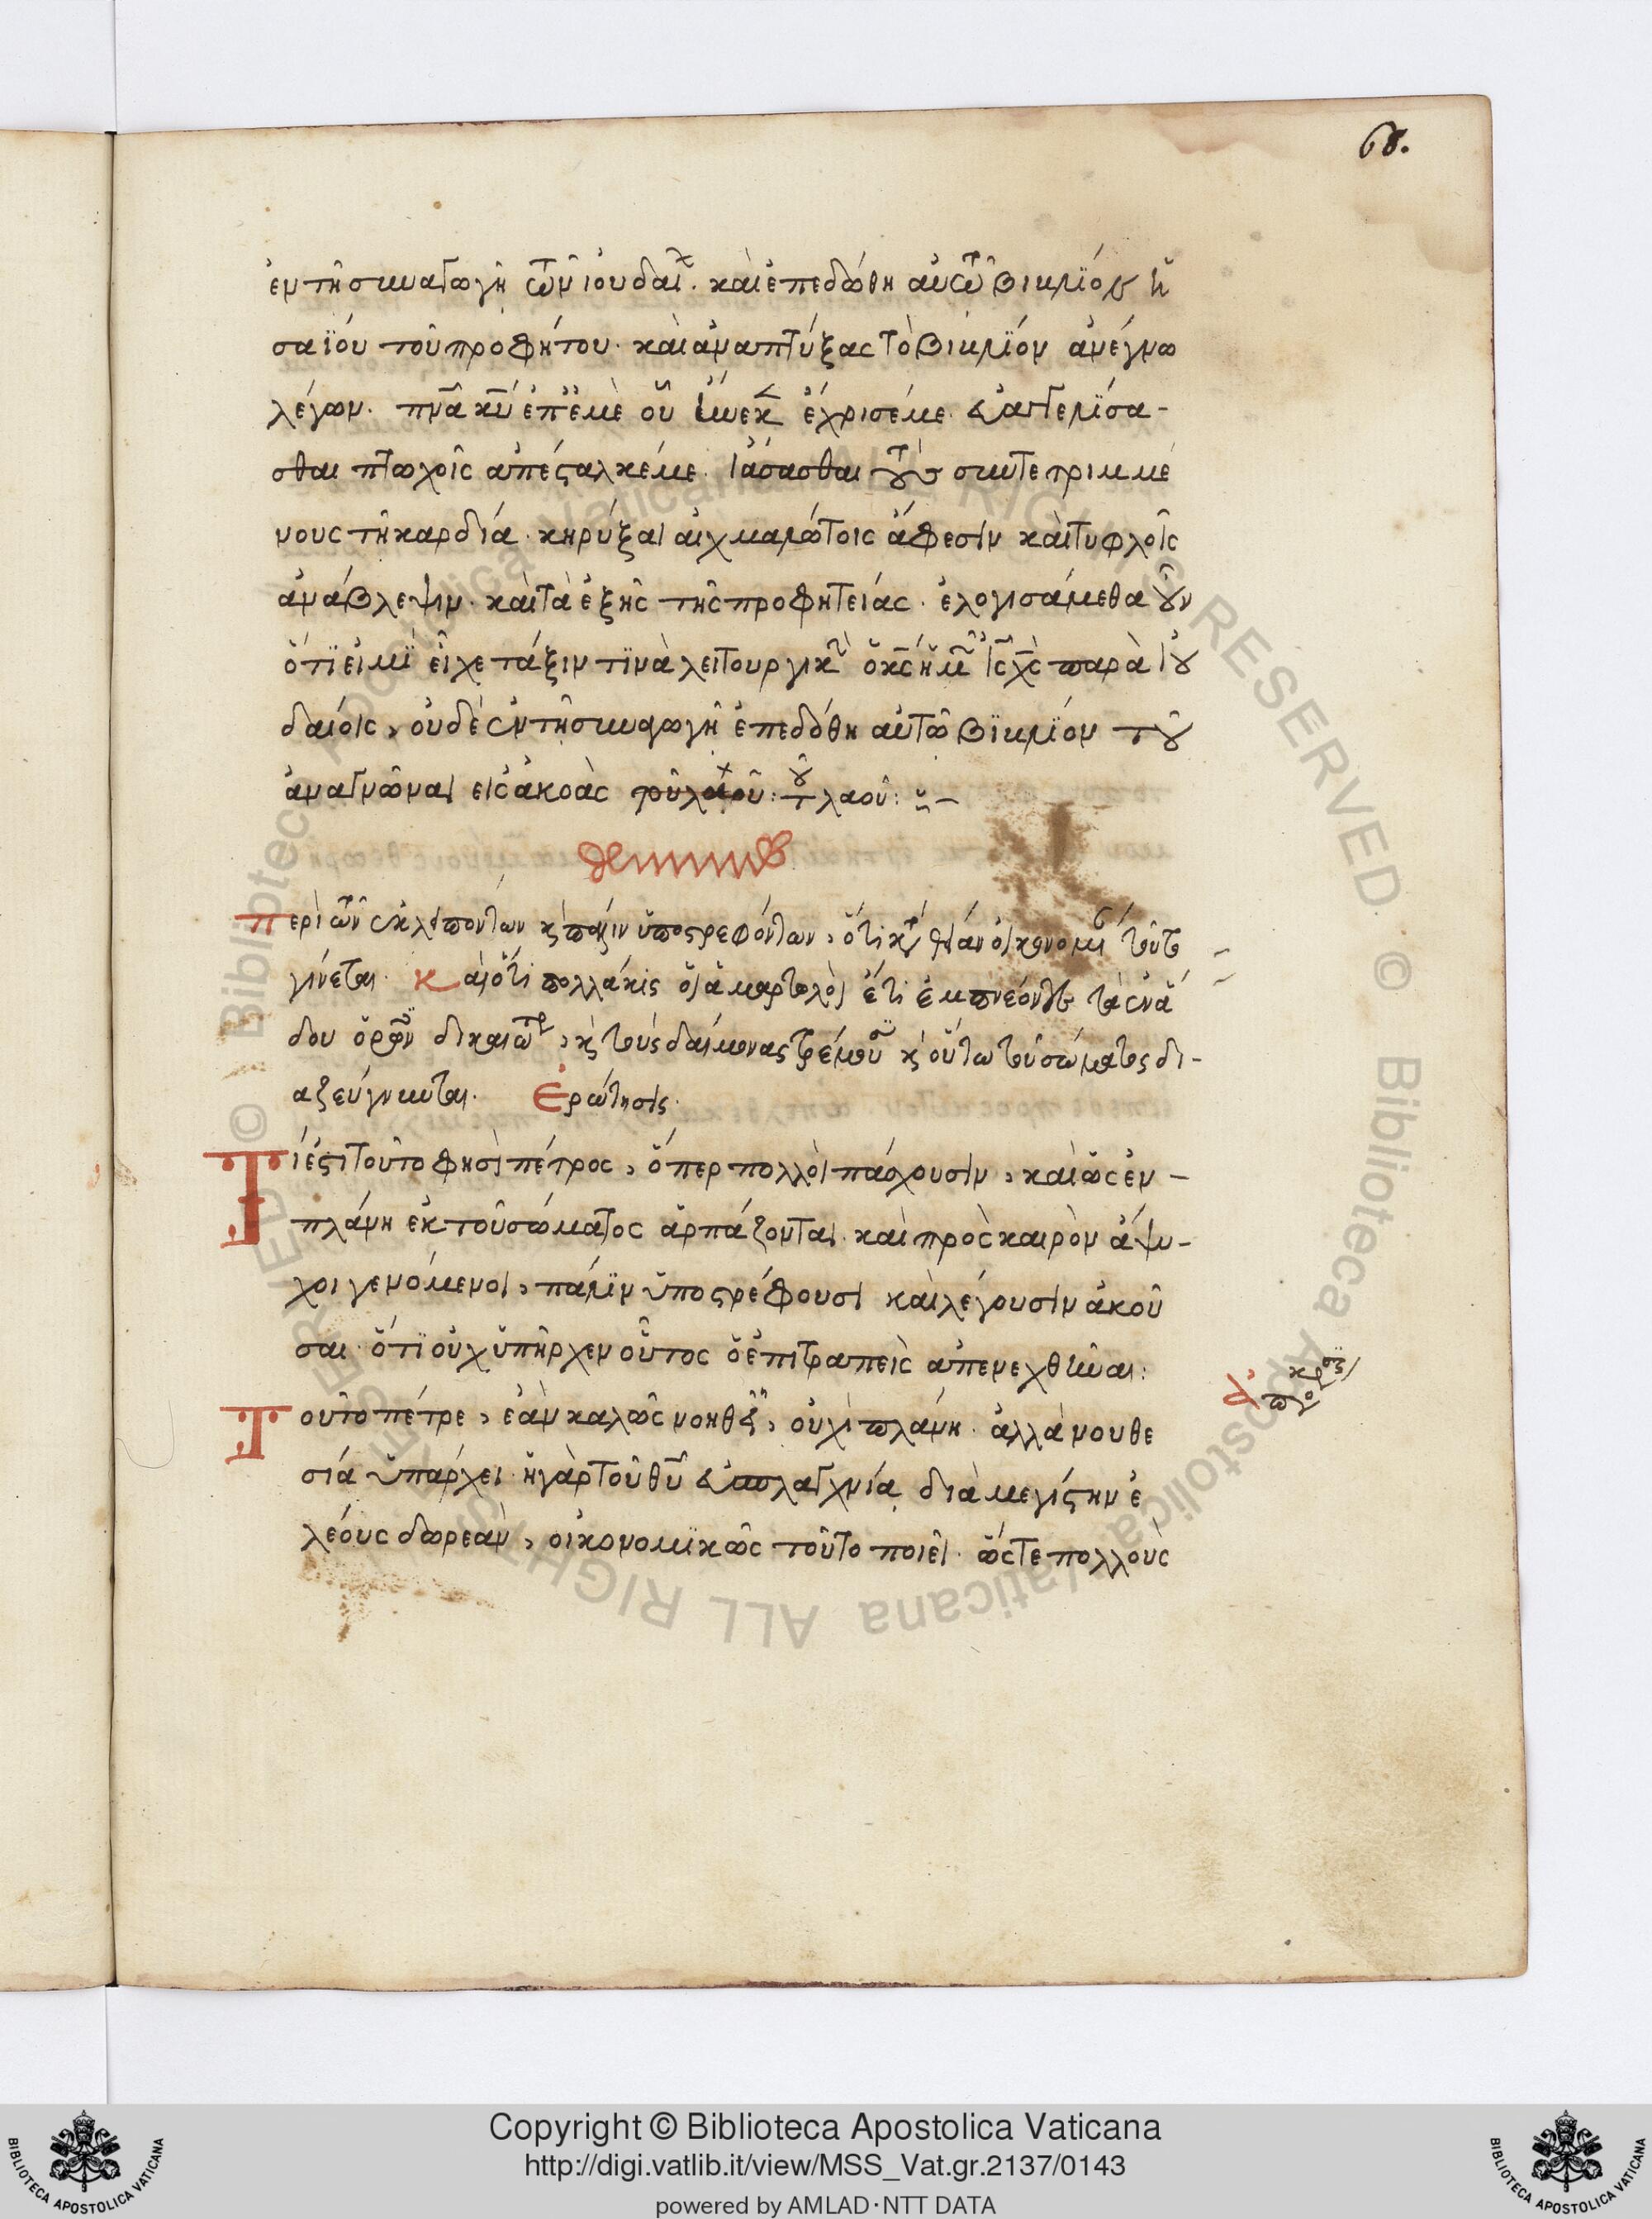 68.
ἐν τῆ συναγωγῆ τῶν ἰουδαί. καὶ ἐπεδόθη αὐτῶ βιβλίον ἡ
σαΐου τοῦ προφήτου. καὶ ἀναπτύξας τὸ βιβλΐον ἀνέγνω
λέγων. πνᾶ κῦ ἐπ' ἐμὲ οὗ ἕνεκ ἔχρισέμε. εὐαγγελΐσα-
σθαι πτωχοῖς ἀπέσταλκέμε. ἰάσασθαι τοὺς συντετριμμέ
νους τῆ καρδία. κηρύξαι αἰχμαλώτοις ἄφεσιν καὶ τυφλοῖς
ἀνάβλεψιν. καὶ τὰ ἑξῆς τῆς προφητείας. ἐλογισάμεθα οὖν
ὅτι εἰμὶ εἶχε τάξιν τϊνὰ λειτουργικὴν ὁ κς ἡμῶν ις χς παρὰ ἰου
δαίοις, οὐδὲ ἐν τῆ συναγωγῆ ἐπεδόθη αὐτῶ βϊβλΐον τοῦ
ἀναγνῶναι εἰς ἀκοὰς τοῦ λαοῦ: τοῦ λαοῦ:
περὶ τῶν ἐκλιπόντων κ πάλιν ὑποστρεφόντων, ὅτι κατὰ θείαν οἰκονομίαν τοῦτο
γίνεται. Καὶ ὅτι πολλάκις οἱ ἁμαρτωλοὶ ἔτι ἐμπνέοντες τὰ ἐν ἅ
δου ὁρῶν δικαιωτήρια, κ τοὺς δαίμονας τρέμουσι κ οὕτω τοῦ σώματος δι-
αζεύγνυνται. Ἐρώτησις.
Τί ἐστι τοῦτο φησὶ πέτρος, ὅπερ πολλοὶ πάσχουσιν, καὶ ὡς ἐν-
πλάνη ἐκ τοῦ σώματος ἁρπάζονται. καὶ πρὸς καιρὸν ἄψυ-
χοι γενόμενοι, πάλϊν ὑποστρέφουσι καὶ λέγουσιν ἀκοῦ
σαι. ὅτϊ οὐχ ὑπῆρχεν οὗτος ὁ ἐπιτραπεὶς ἀπενεχθῆναι:
Τοῦτο πέτρε, ἐὰν καλῶς νοηθῆ, οὐχὶ πλάνη. ἀλλὰ νουθε
σία ὑπάρχει. ἡ γὰρ τοῦ θῦ εὐσπλαγχνία διὰ μεγίστην ἐ
λέους δωρεὰν, οἰκονομϊκῶς τοῦτο ποιεῖ. ὥστε πολλοὺς
Copyright © Biblioteca Apostolica Vaticana
http://digi.vatlib.it/view/MSS_Vat.gr.2137/0143
powered by AMLAD·NTT DATA
BIBLIOTECA APOSTOLICA VATICANA
BIBLIOTECA APOSTOLICA VATICANA
© Biblioteca Apostolica Vaticana ALL RIGHTS RESERVED © Biblioteca Apostolica Vaticana ALL RIGHTS RESERVED